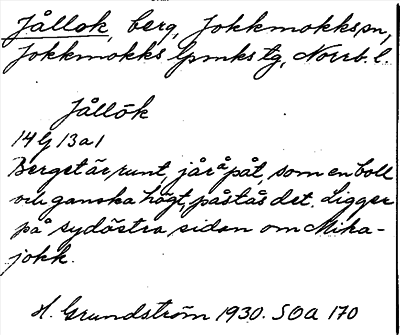 Jållok, berg, Jokkmokks sn,
Jokkmokks lpmks tg, Norrb. l.
Jållōk
14 G 13 a 1
Berget är runt, jåråpåt, som en boll
och ganska högt, påstås det. Ligger
på sydöstra sidan om Mika-
jokk.
H. Grundström 1930. SOA 170